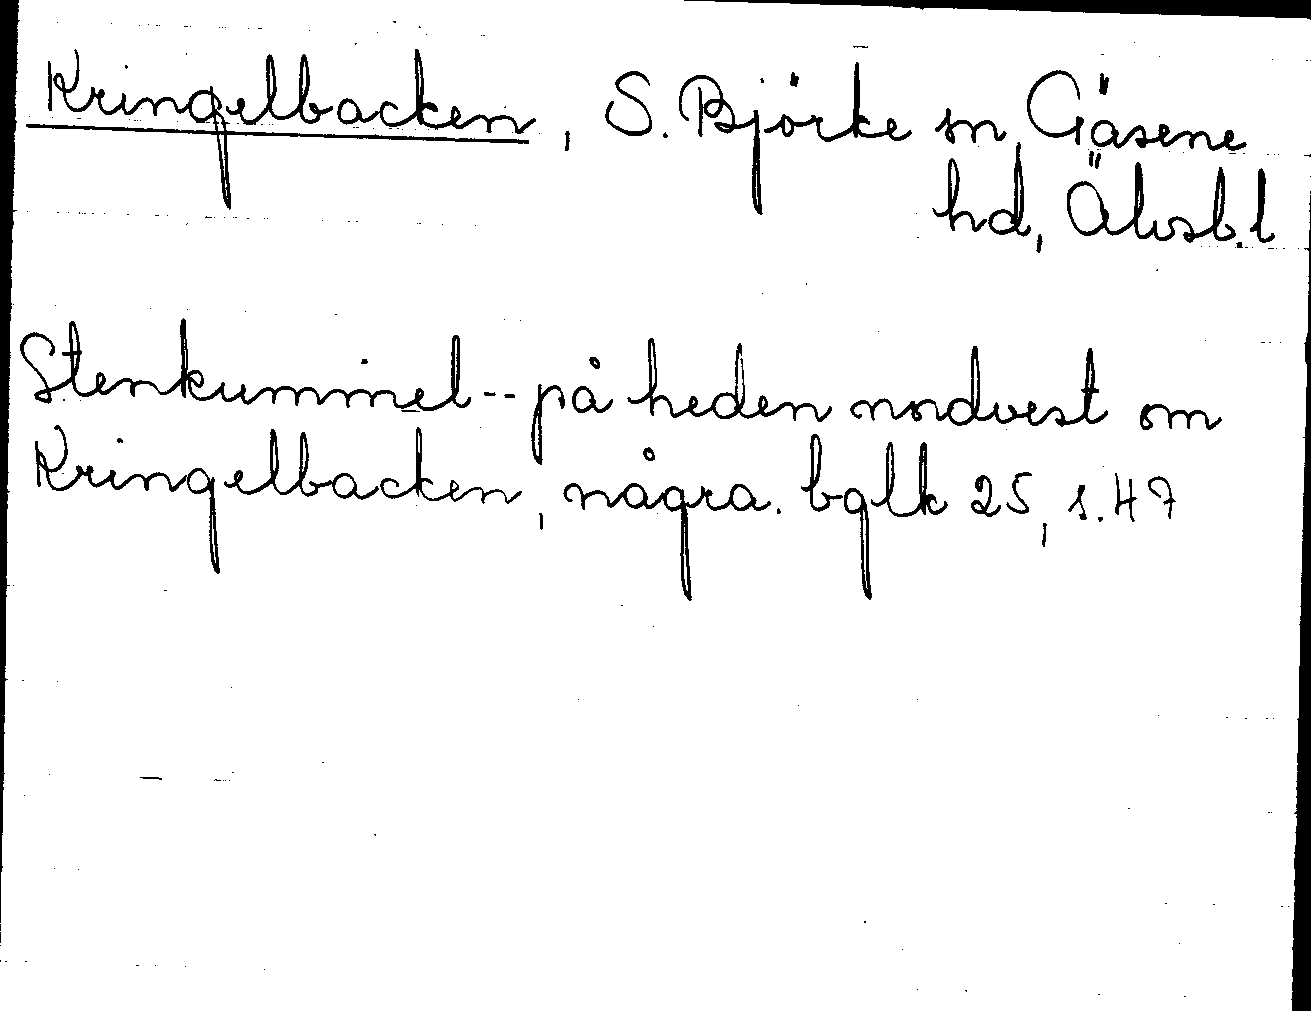 Kringelbacken, S. Björke sn, Gäsene
hd, Älvsb.l
Stenkummel -- på heden nordvest om
Kringelbacken, några. bglk 25, s. 47